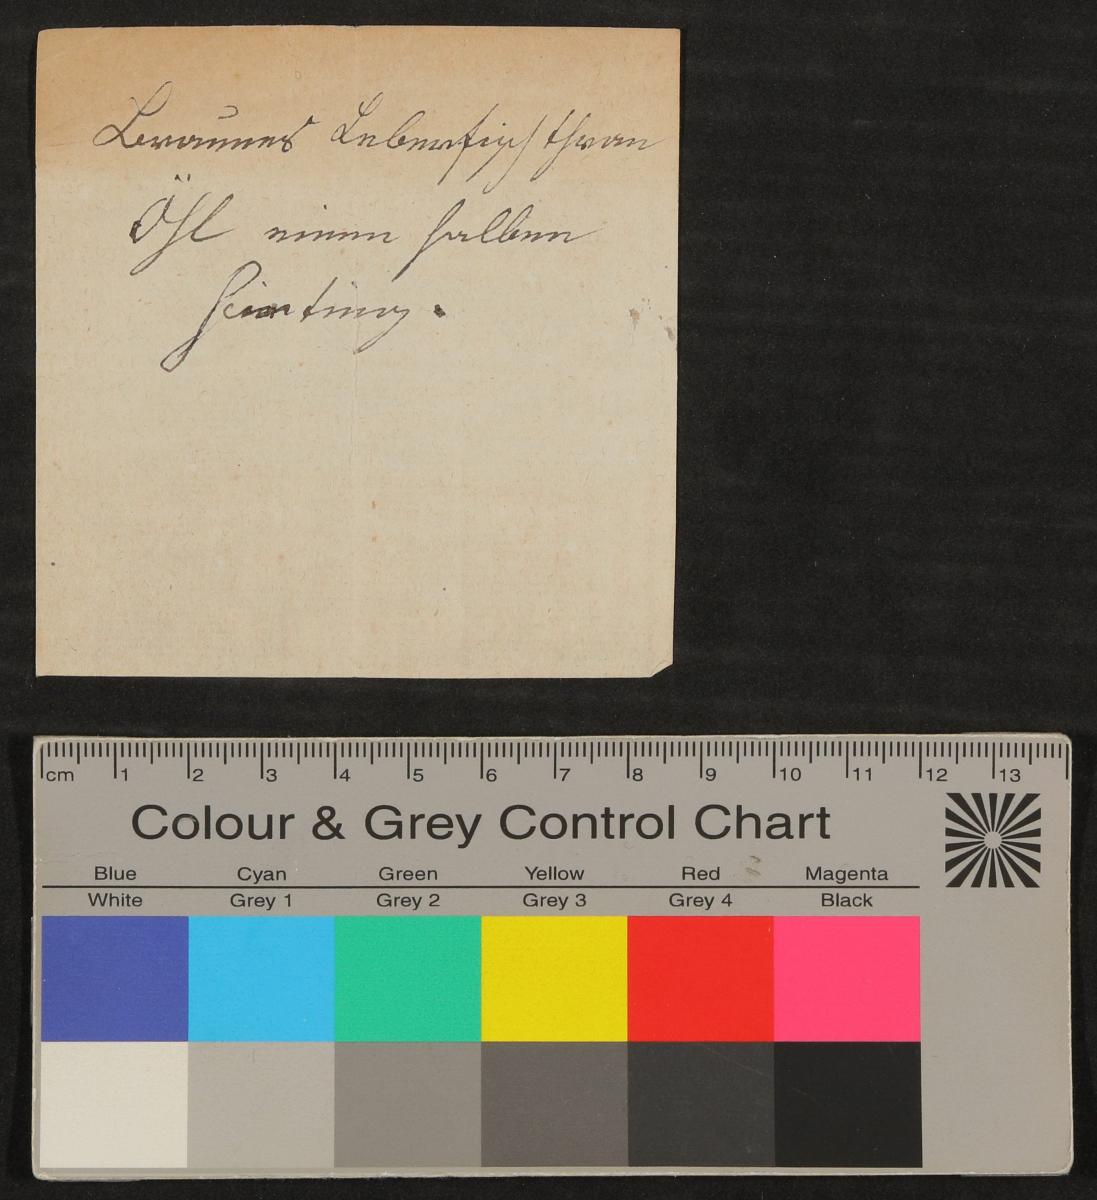 Braunes Leberfisch thran
Öhl einen halben
cm 1 2 3 4 5 6 7 8 9 10 11 12 13
Colour & Grey Control Chart
Blue Cyan Green Yellow Red Magenta
White Grey 1 Grey 2 Grey 3 Grey 4 Black